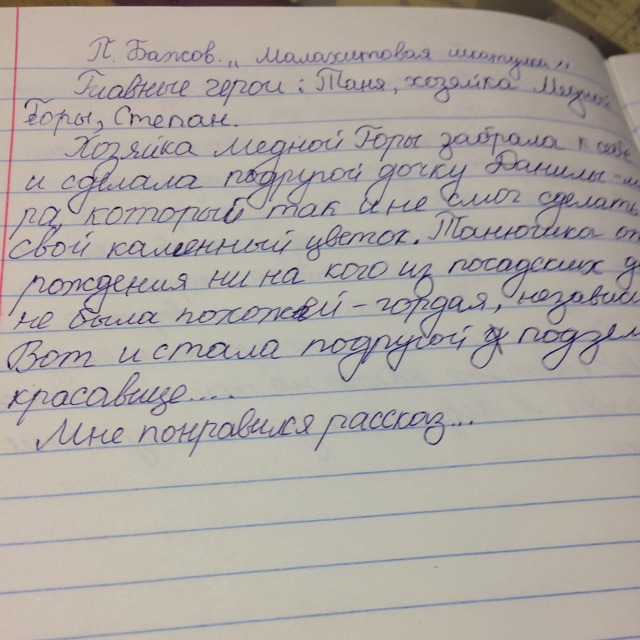 П. Бажов. „ Малахитовая шкатулка"
Главные герои: Таня, хозяйка Медной
Горы, Степан.
Хозяйка Медной Горы забрала к себе
и сделала подругой дочку Данилы-
ра, который так и не смог сделать
свой каменный цветок. Танюшка от
рождения ни на кого из посадских д
не была похожей - гордая, независи
Вот и стала подругой подзем
красавице....
Мне понравился рассказ...